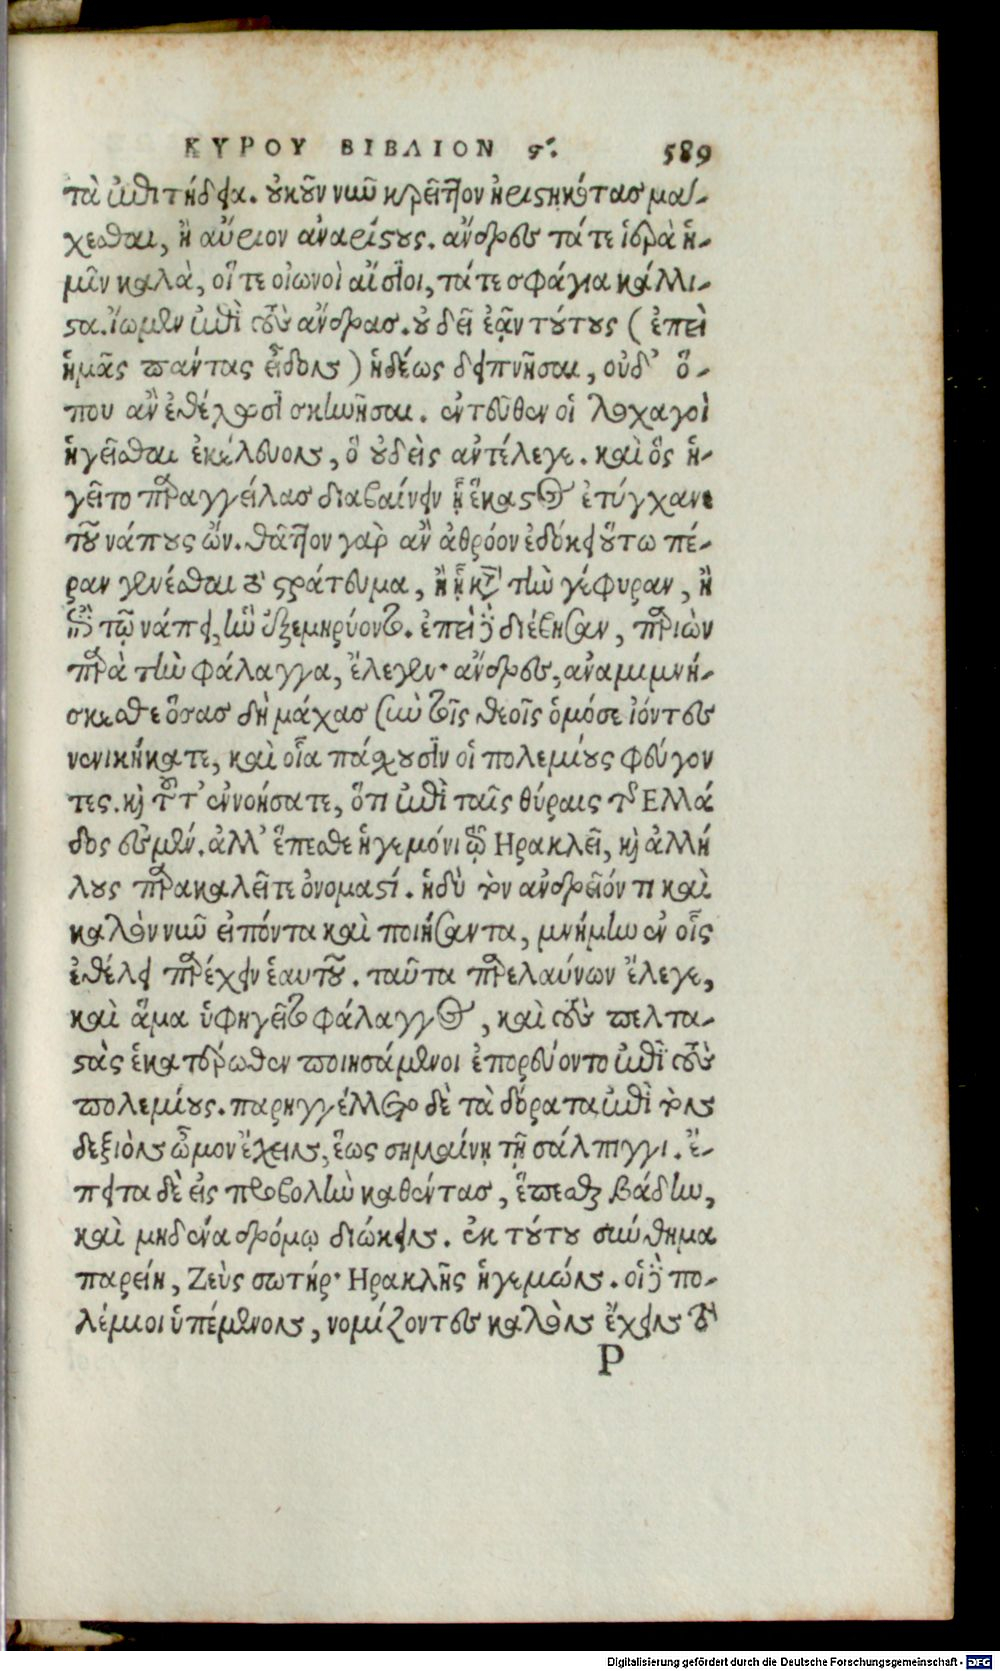 ΚΥΡΟΥ ΒΙΒΛΙΟΝ ϛ΄. 589
τὰ ἐπιτήδεια. οὐκοῦν νῦν κρεῖττον ἠριστηκότας μά-
χεσθαι, ἢ αὔριον ἀναρίστους. ἄνδρες τά τε ἱερὰ ἡ-
μῖν καλὰ, οἵ τε οἰωνοὶ αἴσιοι, τά τε σφάγια κάλλι-
στα. ἴωμεν ἐπὶ τοὺς ἄνδρας. οὐ δεῖ ἐᾷν τούτους (ἐπεὶ
ἡμᾶς πάντας εἶδον) ἡδέως δειπνῆσαι, οὐδ' ὅ-
που ἂν ἐθέλωσι σκηνῆσαι. ἐντεῦθεν οἱ λοχαγοὶ
ἡγεῖσθαι ἐκέλευον, ὃ οὐδεὶς ἀντέλεγε. καὶ ὃς ἡ-
γεῖτο παραγγείλας διαβαίνειν ᾗ ἕκαστος ἐτύγχανε
τοῦ νάπους ὤν. θᾶττον γὰρ ἂν ἀθρόον ἐδόκει οὕτω πέ-
ραν γενέσθαι τὸ στράτευμα, ἢ εἰ κατὰ τὴν γέφυραν, ἢ
ἐπὶ τῷ νάπει, ἣν ἐξεμηρύοντο. ἐπεὶ δὲ διέβησαν, παριὼν
παρὰ τὴν φάλαγγα, ἔλεγεν· ἄνδρες, ἀναμιμνή-
σκεσθε ὅσας δὴ μάχας σὺν τοῖς θεοῖς ὁμόσε ἰόντες
νενικήκατε, καὶ οἷα πάσχουσιν οἱ πολεμίους φεύγον
τες. καὶ τοῦτ' ἐννοήσατε, ὅτι ἐπὶ ταῖς θύραις τῆς Ελλά
δος ἐσμέν. ἀλλ' ἕπεσθε ἡγεμόνι τῷ Ηρακλεῖ, καὶ ἀλλή
λους παρακαλεῖτε ὀνομαστί. ἡδύ τοι ἀνδρεῖόν τι καὶ
καλὸν νῦν εἰπόντα καὶ ποιήσαντα, μνήμην ἐν οἷς
ἐθέλει παρέχειν ἑαυτοῦ. ταῦτα παρελαύνων ἔλεγε,
καὶ ἅμα ὑφηγεῖτο φάλαγγος, καὶ τοὺς πελτα-
στὰς ἑκατέρωθεν ποιησάμενοι ἐπορεύοντο ἐπὶ τοὺς
πολεμίους. παρηγγέλλετο δὲ τὰ δόρατα ἐπὶ τὸν
δεξιὸν ὦμον ἔχειν, ἕως σημαίνῃ τῇ σάλπιγγι. ἔ-
πειτα δὲ εἰς προβολὴν καθέντας, ἕπεσθαι βάδην,
καὶ μηδένα δρόμῳ διώκειν. ἐκ τούτου σύνθημα
παρείη, Ζεὺς σωτήρ· Ηρακλῆς ἡγεμών. οἱ δὲ πο-
λέμιοι ὑπέμενον, νομίζοντες καλὸν ἔχειν τὸ
P
Digitalisierung gefördert durch die Deutsche Forschungsgemeinschaft - DFG